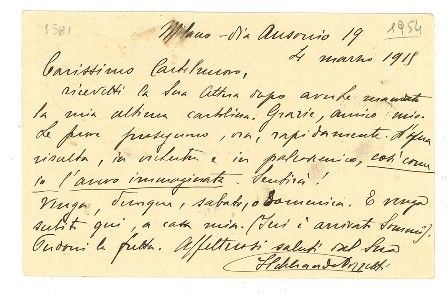 1581
1954
Milano - Via Ausonio 19
4 marzo 1918
Carissimo Castelnuovo,
ricevetti la Sua lettera dopo averle mandato
la mia ultima cartolina. Grazie, amico mio.
Le prove proseguono, ora, rapidamente. L'opera
risulta, in orchestra e in palcoscenico, così come
io l'avevo immaginata. Sentirà!
Venga dunque, sabato, o domenica. E venga
subito qui, a casa mia. (Ieri è arrivato
Perdoni la fretta. Affettuosi saluti dal Suo
Ildebrando Pizzetti